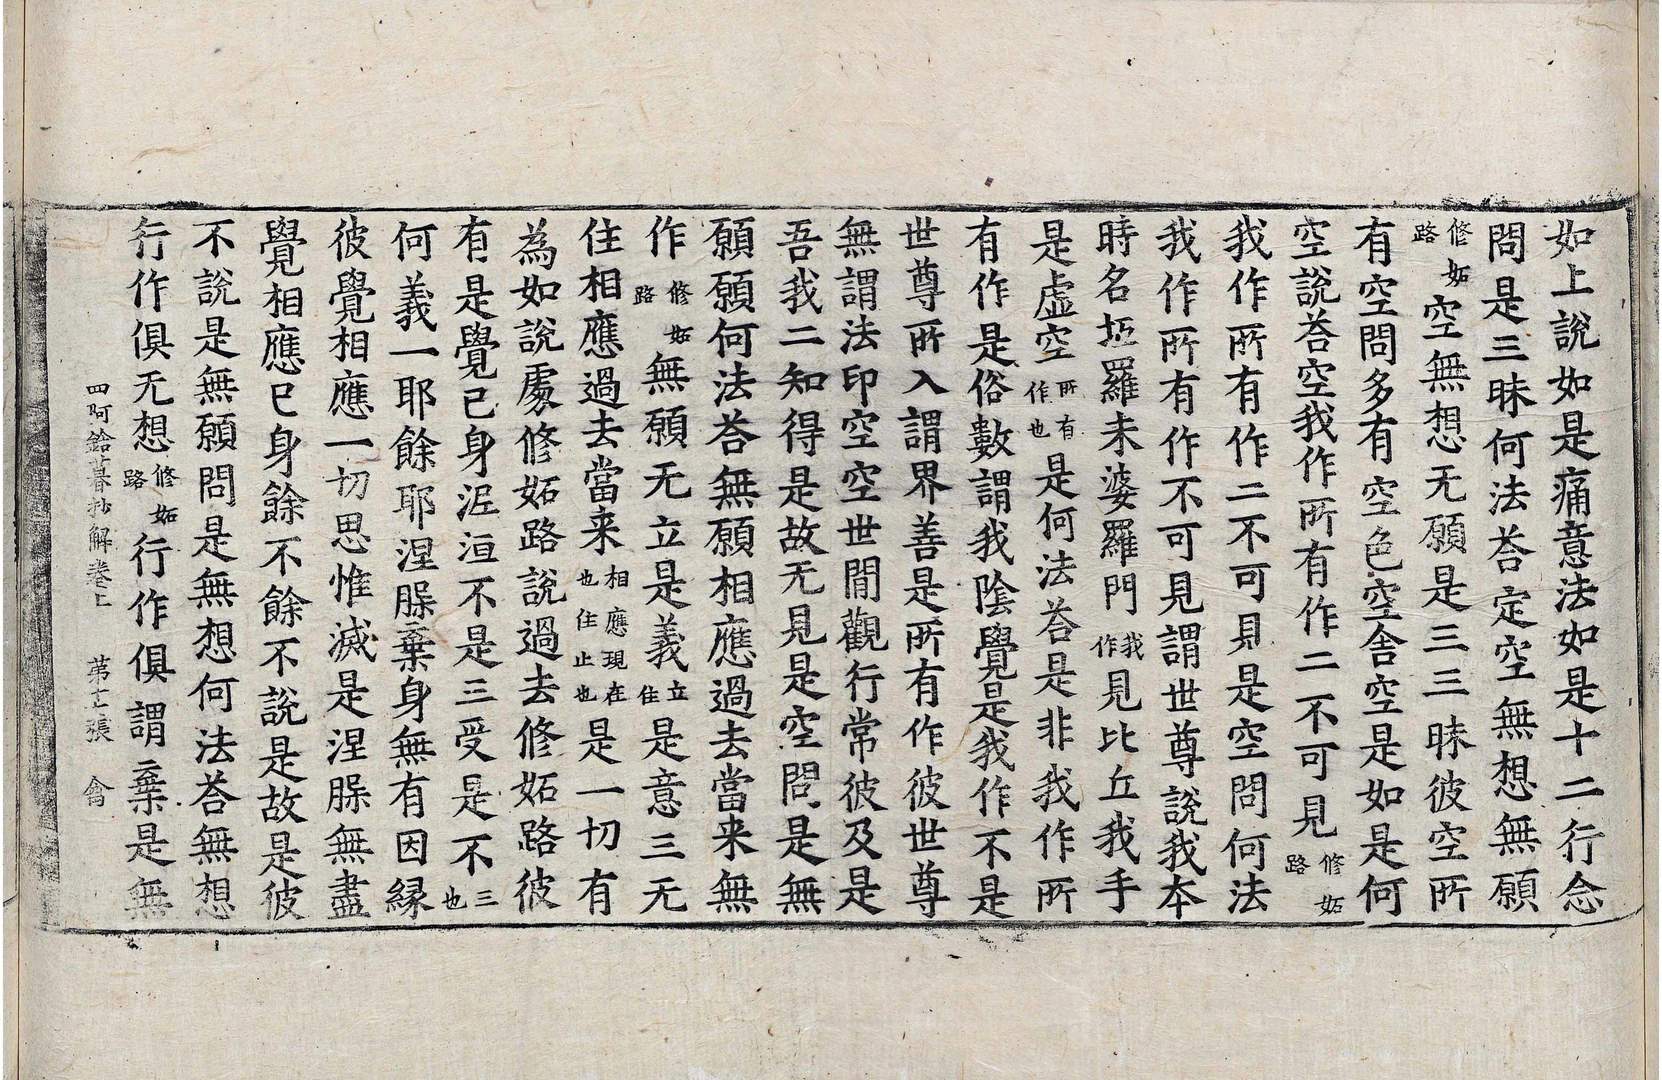 如上說如是痛意法如是十二行念
問是三昧何法荅定空無想無願
修妬路空無想无願是三三昧彼空所
有空問多有空色空舎空是如是何
空說荅空我作所有作二不可見修妬路
我作所有作二不可見是空問何法
我作所有作不可見謂世尊說我本
時名坘羅未婆羅門我作見比丘我手
是虛空所有作也是何法荅是非我作所
有作是俗數謂我陰覺是我作不是
世尊所入謂界善是所有作彼世尊
無謂法印空空世間觀行常彼及是
吾我二知得是故无見是空問是無
願願何法荅無願相應過去當来無
作修妬路無願无立是義立住是意三无
住相應過去當来相應現在也住止也是一切有
為如說處修妬路說過去修妬路彼
有是覺已身泥洹不是三受是不三也
何義一耶餘耶涅𣨙棄身無有因縁
彼覺相應一切思惟滅是涅𣨙無盡
覺相應已身餘不餘不說是故是彼
不說是無願問是無想何法荅無想
行作俱无想修妬路行作俱謂棄是無
四阿鋡暮抄解卷上　第十二張　禽